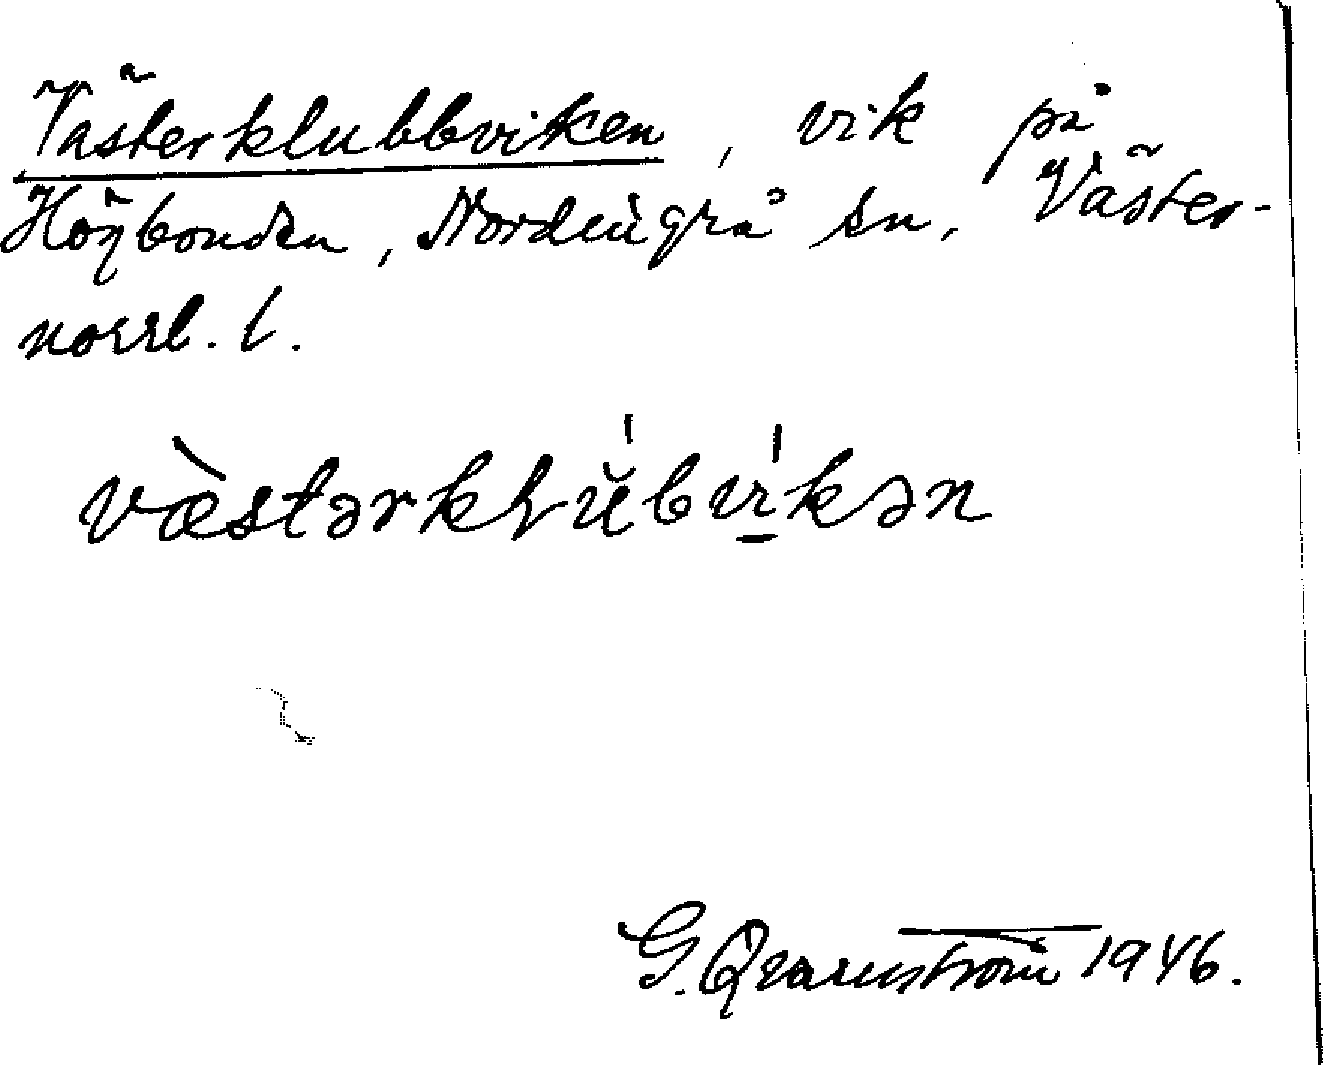 Västerklubbviken, vik på
Högbonden, Nordingrå sn, Väster-
norrl. l.
væ̀stərkɽùbvìkən
G. Qvarnström 1946.